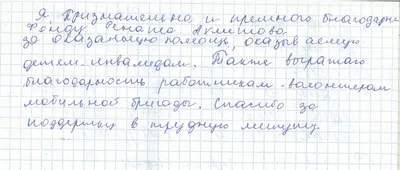 Я признательна и премного благодарна
Фонду Рената Ахметова
за оказанную помощь, оказываемую
детям-инвалидам. Также выражаю
благодарность работникам-волонтерам
мобильной бригады. Спасибо за
поддержку в трудную минуту.